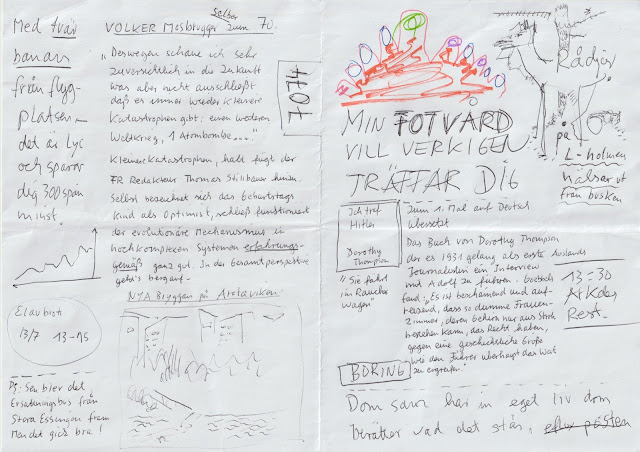 Med tvär
banan
från flyg-
platsen
det är Lyc
och sparar
dig 300 spän
minst.
Elaubist
13/7 13-15
PS. Sen blev det
Ersättningsbuss från
Stora Essingen fram
Men det gick bra!
Selber
VOLKER Mosbrugger zum 70.
„Deswegen schaue ich sehr
zuversichtlich in die Zukunft
was aber nicht ausschließt
daß es immer wieder kleinere
Katastrophen gibt: einen weiteren
Weltkrieg, 1 Atombombe...."
Kleinere Katastrophen, halt fügt der
FR Redakteur Thomas Stillbauer hinzu.
Selbst bezeichnet sich das Geburtstags
kind als Optimist, schließlich funktioniert
der evolutionäre Mechanismus in
hochkomplexen Systemen erfahrungs-
gemäß ganz gut. In der Gesamtperspektive
geht's bergauf.-
7074
NYA Bryggan på Årstaviken
MIN FOTVARD
VILL VERKIGEN
TRÄFFAR DIG
Rådjur
på
L-holmen
hälsar ut
från busken
Ich traf
Hitler
Dorothy
Thompson
zum 1. Mal auf Deutsch
übersetzt
Das Buch von Dorothy Thompson
der es 1931 gelang als erste Auslands
Journalistin ein Interview
mit Adolf zu führen. Goebbels
fand: „Es ist beschämend und auf-
reizend, dass so dumme Frauen-
zimmer, deren Gehirn nur aus Stroh
bestehen kann, das Recht haben,
gegen eine geschichtliche Größe
wie den Führer überhaupt das Wort
zu ergreifen."
"Sie fährt
im Raucher
Wagen"
13-30
Arkdes
Rest.
BORING
Dom sover har in eget liv dom
berättar vad det står,